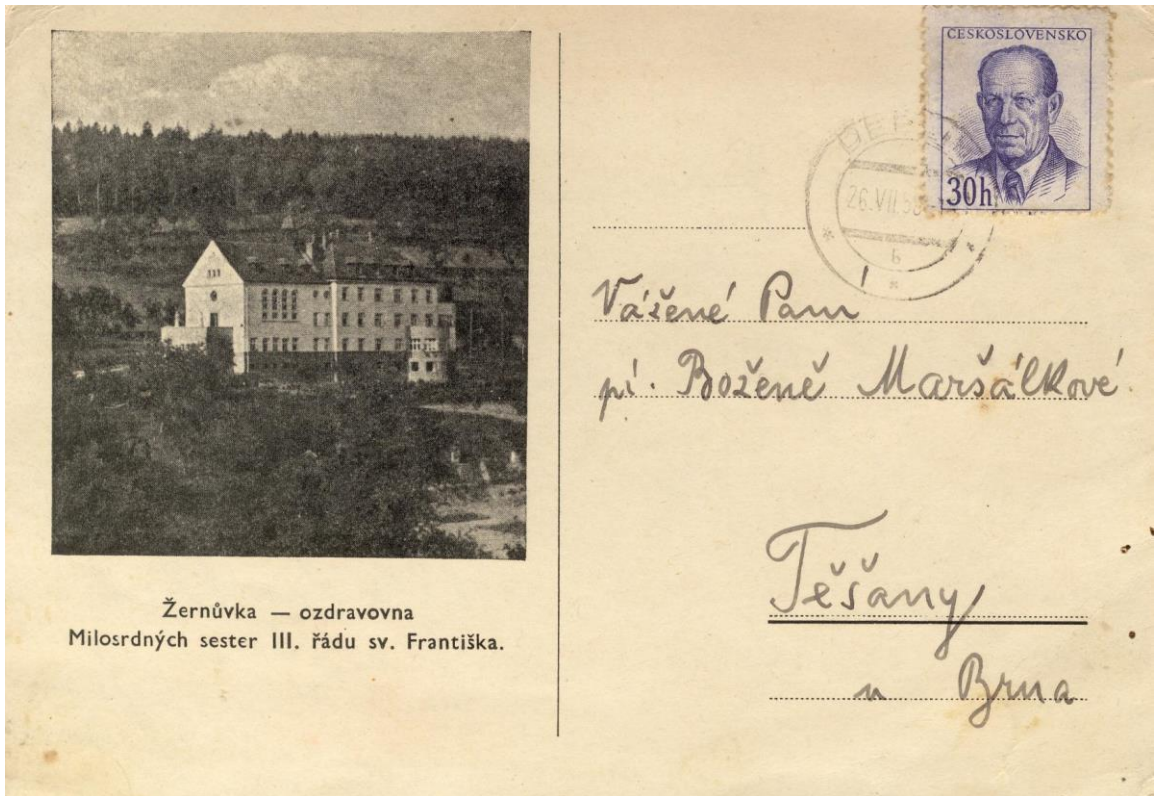 Žernůvka — ozdravovna
Milosrdných sester III. řádu sv. Františka.
ČESKOSLOVENSKO
30h
26.VII.
Vážené Paní
pí. Boženě Maršálkové
Těšany
u Brna